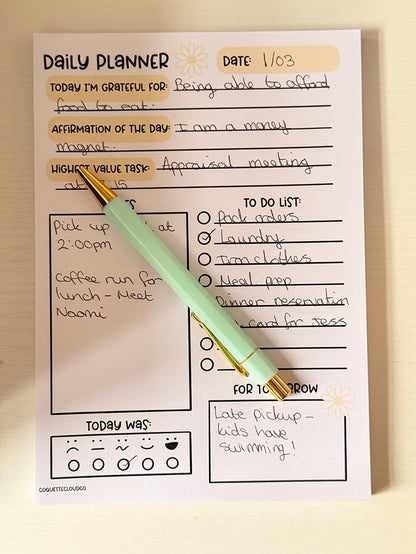 DAILY PLANNER
DATE: 1/03
TODAY I'M GRATEFUL FOR: Being able to afford
food to eat.
AFFIRMATION OF THE DAY: I am a money
magnet.
HIGHEST VALUE TASK: Appraisal meeting
at :15
TO DO LIST:
Pack orders
Laundry
Iron clothes
Meal prep
Dinner reservation
card for Jess
Pick up at
2:00pm
Coffee run for
lunch - Meet
Naomi
FOR TOMORROW
Late pickup -
kids have
swimming!
TODAY WAS:
COQUETTECLOUDCO